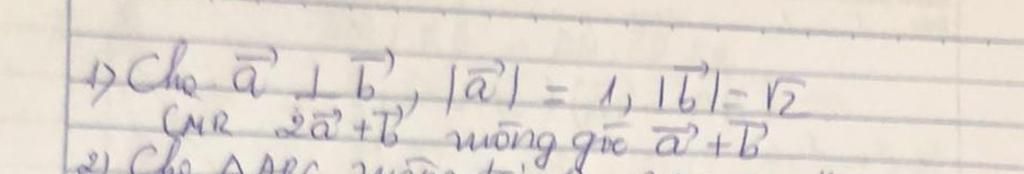 1) Cho a⃗ ⊥ b⃗, |a⃗| = 1, |b⃗| = √2
CMR 2a⃗ + b⃗ vuông góc a⃗ + b⃗
2) Cho Δ ABC vuông